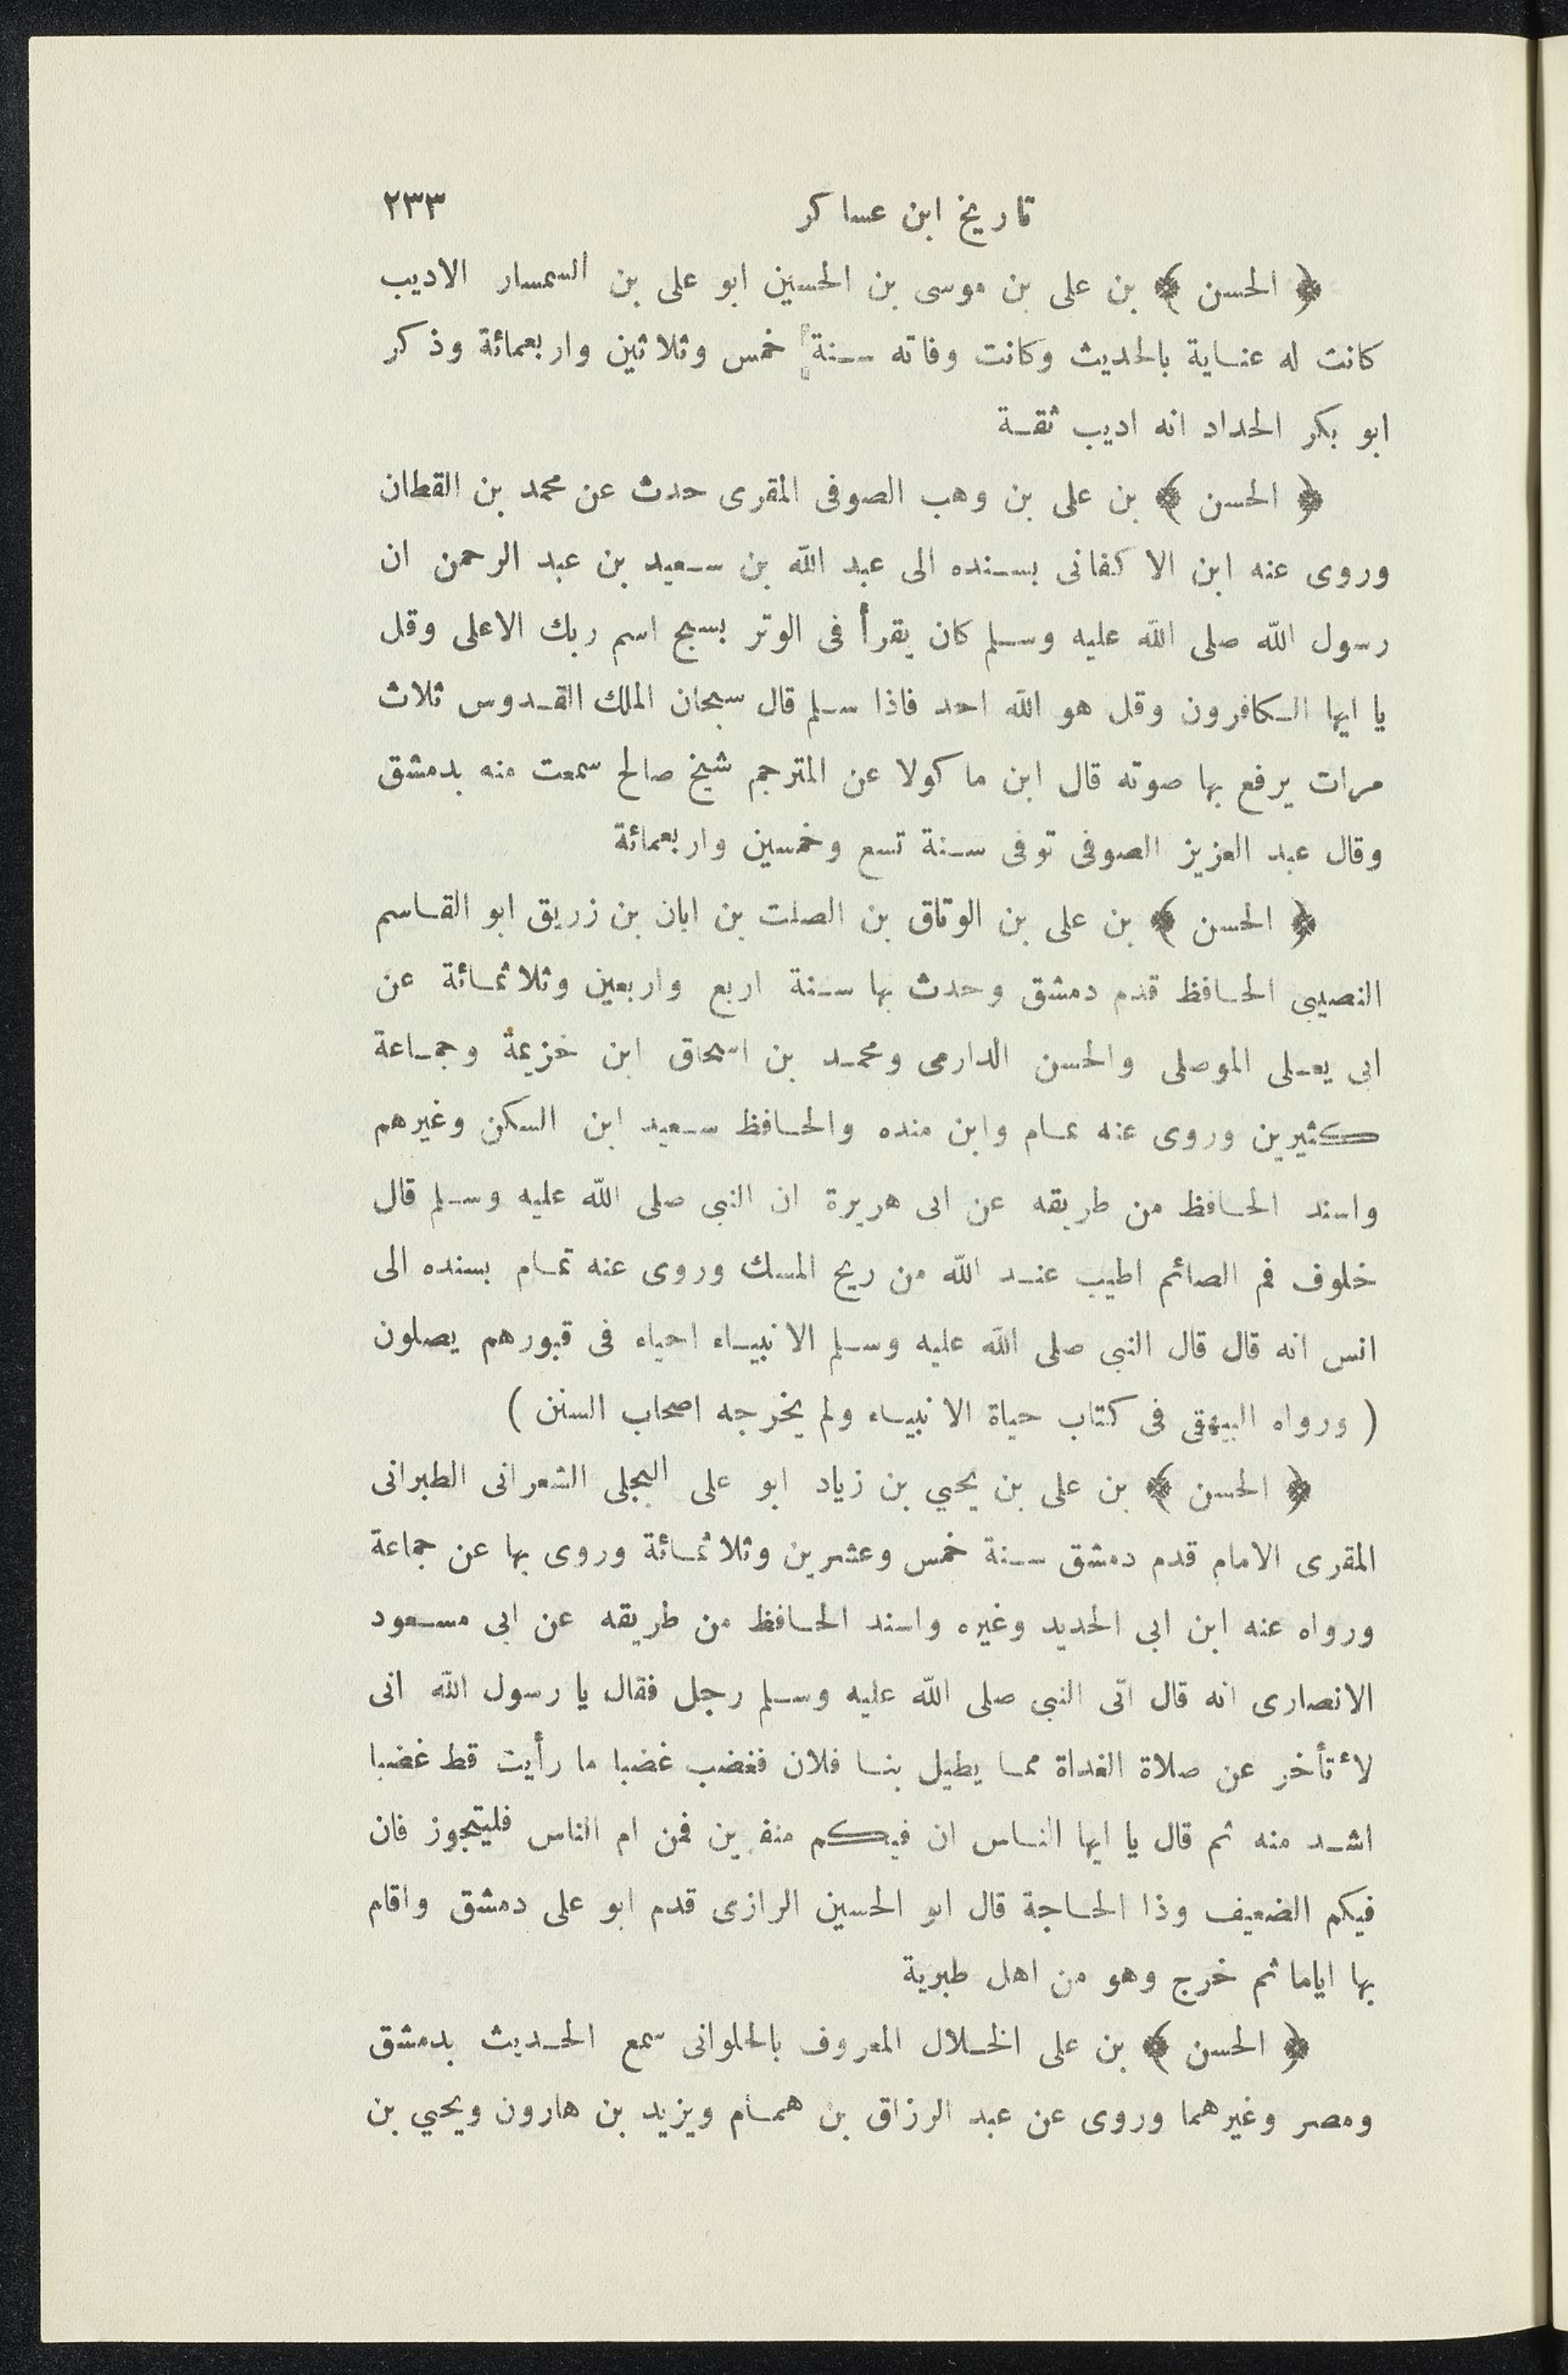 تاريخ ابن عساكر ٢٣٣
﴿ الحسن ﴾ بن على بن موسى بن الحسين ابو على بن السمسار الاديب
كانت له عناية بالحديث وكانت وفاته سنة خمس وثلاثين واربعمائة وذكر
ابو بكر الحداد انه اديب ثقة
﴿ الحسن ﴾ بن على بن وهب الصوفى المقرى حدث عن محمد بن القطان
وروى عنه ابن الاكفانى بسنده الى عبد الله بن سعيد بن عبد الرحمن ان
رسول الله صلى الله عليه وسلم كان يقرأ فى الوتر بسبح اسم ربك الاعلى وقل
يا ايها الكافرون وقل هو الله احد فاذا سلم قال سبحان الملك القدوس ثلاث
مرات يرفع بها صوته قال ابن ماكولا عن المترجم شيخ صالح سمعت منه بدمشق
وقال عبد العزيز الصوفى توفى سنة تسع وخمسين واربعمائة
﴿ الحسن ﴾ بن على بن الوتاق بن الصلت بن ابان بن زريق ابو القاسم
النصيبى الحافظ قدم دمشق وحدث بها سنة اربع واربعين وثلاثمائة عن
ابى يعلى الموصلى والحسن الدارمى ومحمد بن اسحاق ابن خزيمة وجماعة
كثيرين وروى عنه تمام وابن منده والحافظ سعيد ابن السكن وغيرهم
واسند الحافظ من طريقه عن ابى هريرة ان النبى صلى الله عليه وسلم قال
خلوف فم الصائم اطيب عند الله من ريح المسك وروى عنه تمام بسنده الى
انس انه قال قال النبى صلى الله عليه وسلم الانبياء احياء فى قبورهم يصلون
( ورواه البيهقى فى كتاب حياة الانبياء ولم يخرجه اصحاب السنن )
﴿ الحسن ﴾ بن على بن يحيي بن زياد ابو على البجلى الشعرانى الطبرانى
المقرى الامام قدم دمشق سنة خمس وعشرين وثلاثمائة وروى بها عن جماعة
ورواه عنه ابن ابى الحديد وغيره واسند الحافظ من طريقه عن ابى مسعود
الانصارى انه قال اتى النبى صلى الله عليه وسلم رجل فقال يا رسول الله انى
لأتأخر عن صلاة الغداة مما يطيل بنا فلان فغضب غضبا ما رأيت قط غضبا
اشد منه ثم قال يا ايها الناس ان فيكم منفرين فمن ام الناس فليتجوز فان
فيكم الضعيف وذا الحاجة قال ابو الحسين الرازى قدم ابو على دمشق واقام
بها اياما ثم خرج وهو من اهل طبرية
﴿ الحسن ﴾ بن على الخلال المعروف بالحلوانى سمع الحديث بدمشق
ومصر وغيرهما وروى عن عبد الرزاق بن همام ويزيد بن هارون ويحيي بن